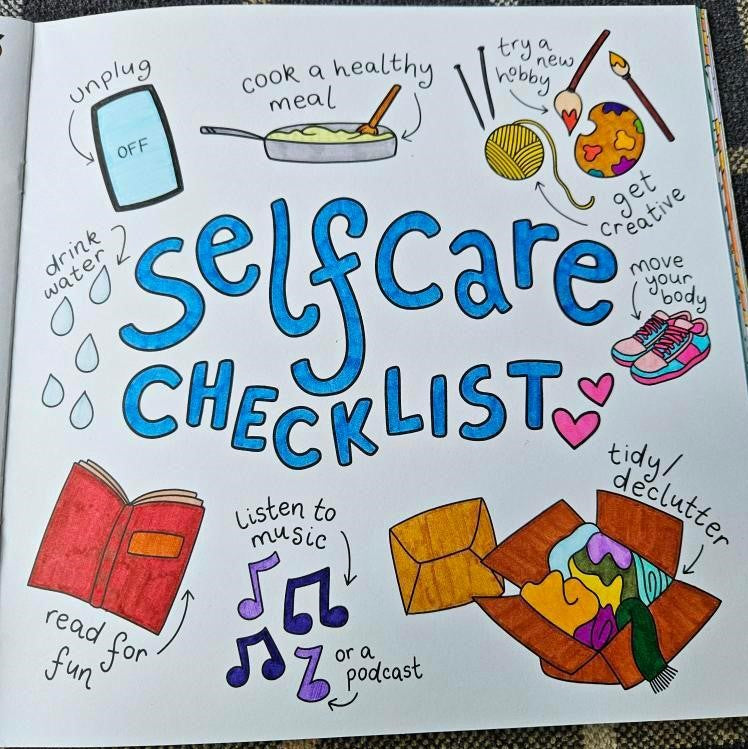 unplug
OFF
cook a healthy
meal
try a
new
hobby
get
creative
drink
water
Selfcare
CHECKLIST
move
your
body
read for
fun
listen to
music
or a
podcast
tidy/
declutter